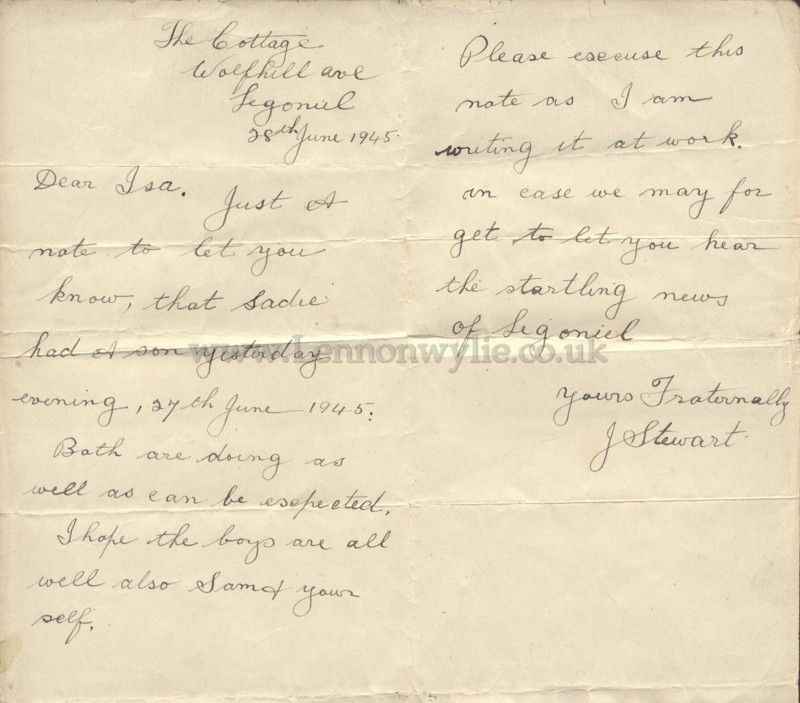 The Cottage
Wolfhill ave
Legoniel
28th June 1945.
Dear Isa.
Just A
note to let you
know, that Sadie
had A son yesterday
evening, 27th June 1945.
Both are doing as
well as can be expected.
I hope the boys are all
well also Sam & your
self.
Please excuse this
note as I am
writing it at work.
in case we may for
get to let you hear
the startling news
of Legoniel
Yours Fraternally
J Stewart.
www.Lennonwylie.co.uk